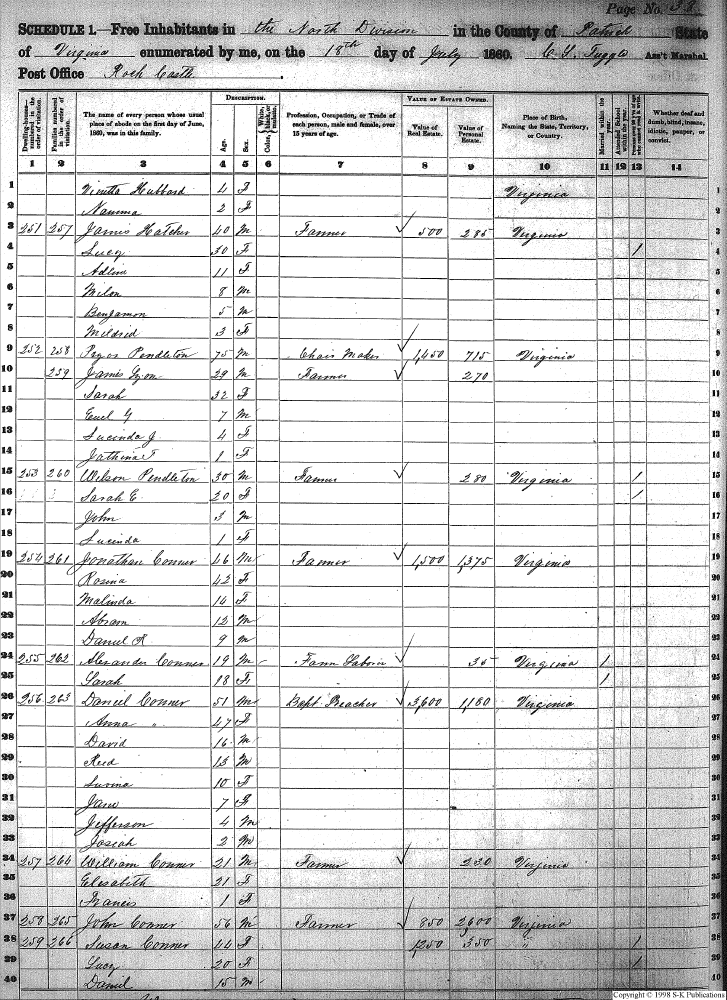 Page No. 38
SCHEDULE 1.—Free Inhabitants in the North Division in the County of Patrick State
of Virginia enumerated by me, on the 18th day of July 1860. C. Y. Tuggle Ass't Marshal
Post Office Rock Castle.
DESCRIPTION. VALUE OF ESTATE OWNED.
Dwelling-houses—numbered in the order of visitation. Families numbered in the order of visitation. The name of every person whose usual place of abode on the first day of June, 1860, was in this family. Age. Sex. Color, White, black, or mulatto. Profession, Occupation, or Trade of each person, male and female, over 15 years of age. Value of Real Estate. Value of Personal Estate. Place of Birth, Naming the State, Territory, or Country. Married within the year. Attended School within the year. Whether deaf and dumb, blind, insane, idiotic, pauper, or convict.
1 2 3 4 5 6 7 8 9 10 11 12 13 14
1 Hubbard 4 F Virginia
2 2 F 2
3 251 257 James Hatcher 40 M Farmer 500 285 Virginia 3
4 Lucy 30 F / 4
5 Adline 11 F 5
6 Milon 8 M 6
7 Benjamon 5 M 7
8 Mildrid 3 F 8
9 252 258 Pryor Pendleton 75 M Chair Maker 1,450 715 Virginia 9
10 259 James 29 M Farmer 270 10
11 Sarah 32 F 11
12 7 M 12
13 Lucinda J 4 F 13
14 1 F 14
15 253 260 Wilson Pendleton 30 M Farmer 280 Virginia / 15
16 Sarah E 20 F / 16
17 John 3 M 17
18 Lucinda 1 F 18
19 254 261 Jonathan Conner 46 M Farmer 1,500 1,375 Virginia 19
20 Rosina 42 F 20
21 Malinda 14 F 21
22 Abram 12 M 22
23 Daniel R 9 M 23
24 255 262 Alexander Conner 19 M Farm Laborer 35 Virginia 1 24
25 Sarah 18 F 1 25
26 256 263 Daniel Conner 51 M Bapt Preacher 3,600 1,180 Virginia 26
27 Anna " 47 F 27
28 David 16 M 28
29 Reed 13 M 29
30 10 F 30
31 Jane 7 F 31
32 Jefferson 4 M 32
33 Josiah 2 M 33
34 257 264 William Conner 21 M Farmer 230 Virginia 34
35 Elesabeth 21 F 35
36 Francis 1 F 36
37 258 265 John Conner 56 M Farmer 850 2,600 Virginia 37
38 259 266 Susan Conner 44 F 1,250 350 " / 38
39 Lucy 20 F / 39
40 Daniel 15 M 40
Copyright © 1998 S-K Publications